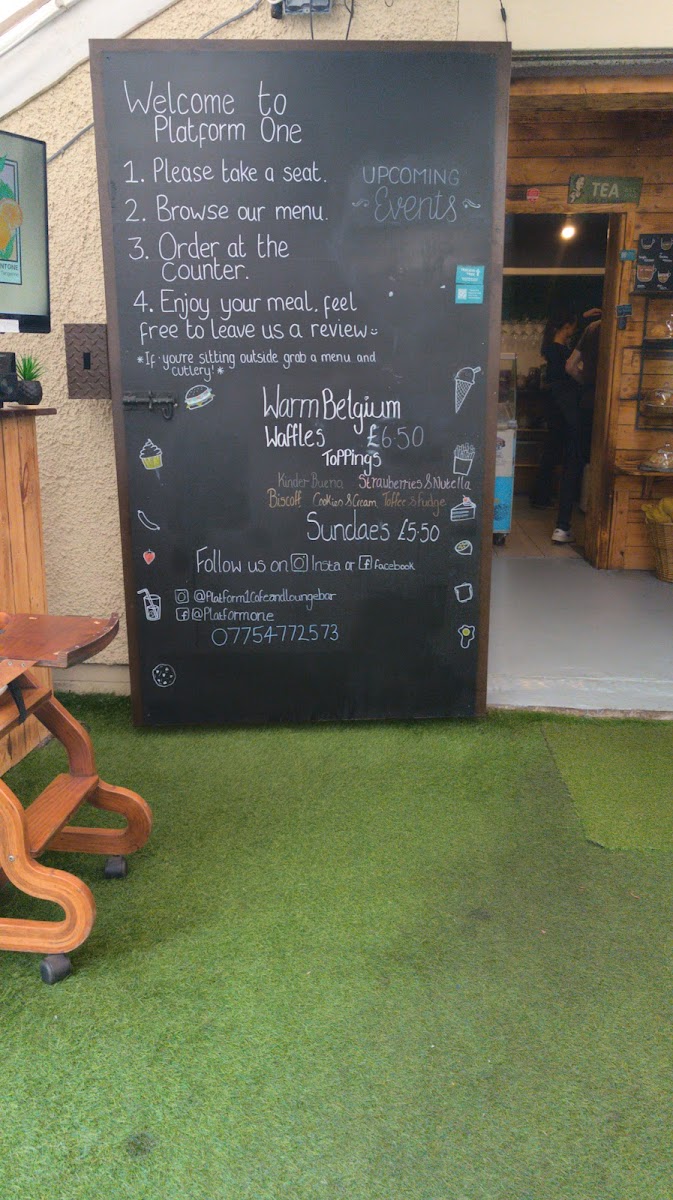 Welcome to
Platform One
1. Please take a seat.
2. Browse our menu.
3. Order at the
counter.
4. Enjoy your meal, feel
free to leave us a review
*If you're sitting outside grab a menu and
cutlery!*
UPCOMING
~ Events ~
Warm Belgium
Waffles £6.50
Toppings
Kinder Bueno Strawberries & Nutella
Biscoff Cookies & Cream Toffee & Fudge
Sundaes £5.50
Follow us on Insta or Facebook
@Platform1Cafeandloungebar
@Platformone
07754772573
TEA